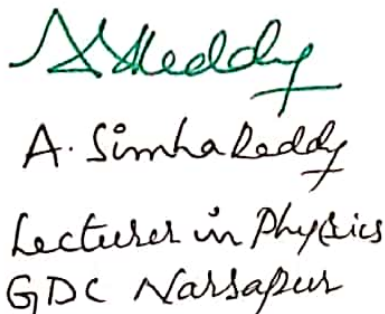 ASReddy
A. Simha Reddy
Lecturer in Physics
GDC Narsapur